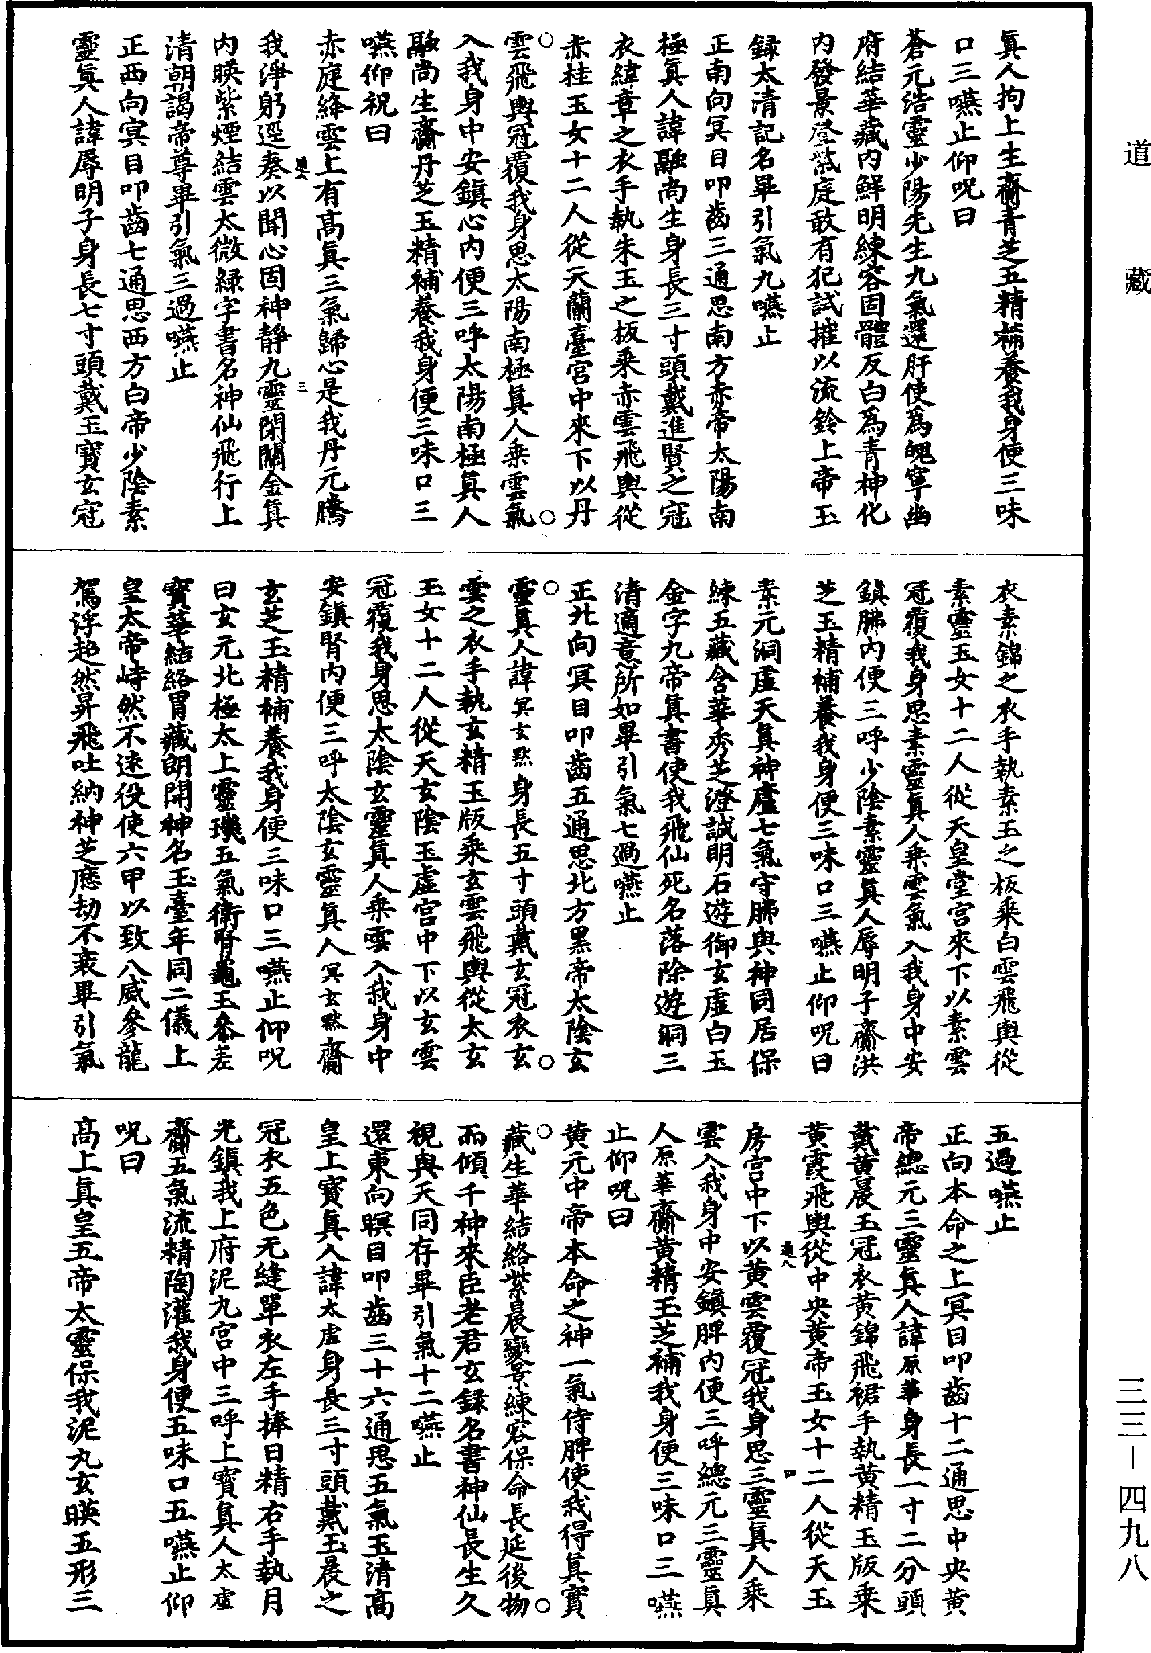 真人拘上生齋青芝五精補養我身便三味
口三嚥止仰呪曰
蒼元浩靈少陽先生九氣還肝使爲魄寧幽
府結華藏内鮮明練容固體反白爲青神化
内發景登紫庭敢有犯試摧以流鈴上帝玉
録太清記名畢引氣九嚥止
正南向冥目叩齒三通思南方赤帝太陽南
極真人諱融尚生身長三寸頭戴進賢之冠
衣緯章之衣手執朱玉之板乘赤雲飛輿從
赤桂玉女十二人從天蘭臺宮中來下以丹
雲飛輿冠覆我身思太陽南極真人乘雲氣
入我身中安鎮心内便三呼太陽南極真人
融尚生齋丹芝玉精補養我身便三味口三
嚥仰祝曰
赤庭絳雲上有高真三氣歸心是我丹元騰
我淨躬逕奏以聞心固神靜九靈閉關金真
内暎紫煙結雲太微緑字書名神仙飛行上
清朝謁帝尊畢引氣三過嚥止
正西向冥目叩齒七通思西方白帝少陰素
靈真人諱辱明子身長七寸頭戴玉寳玄冠
衣素錦之衣手執素玉之板乘白雲飛輿從
素靈玉女十二人從天皇堂宮來下以素雲
冠覆我身思素靈真人乘雲氣入我身中安
鎮肺内便三呼少陰素靈真人辱明子齋洪
芝玉精補養我身便三味口三嚥止仰呪曰
素元洞虛天真神廬七氣守肺與神同居保
練五藏含華秀芝澄誠明石遊御玄虛白玉
金字九帝真書使我飛仙死名落除遊洞三
清適意所如畢引氣七過嚥止
正北向冥目叩齒五通思北方黑帝太陰玄
靈真人諱冥玄煞身長五寸頭戴玄冠衣玄
雲之衣手執玄精玉版乘玄雲飛輿從太玄
玉女十二人從天玄陰玉虛宮中下以玄雲
冠覆我身思太陰玄靈真人乘雲入我身中
安鎮腎内便三呼太陰玄靈真人冥玄煞齋
玄芝玉精補養我身便三味口三嚥止仰呪
曰玄元北極太上靈璣五氣衛腎龜玉參差
寳華結絡胃藏朗開神名玉臺年同二儀上
皇太帝峙然不逺役使六甲以致八威參龍
駕浮超然昇飛吐納神芝應劫不衰畢引氣
五過嚥止
正向本命之上冥目叩齒十二通思中央黄
帝總元三靈真人諱原華身長一寸二分頭
戴黄晨玉冠衣黄錦飛裙手執黄精玉版乘
黄霞飛輿從中央黄帝玉女十二人從天玉
房宮中下以黄雲覆冠我身思三靈真人乘
雲入我身中安鎮脾内便三呼總元三靈真
人原華齋黄精玉芝補我身便三味口三嚥
止仰呪曰
黄元中帝本命之神一氣侍脾使我得真寳
藏生華結絡紫晨變景練容保命長延後物
而傾千神來臣老君玄録名書神仙長生久
視與天同存畢引氣十二嚥止
還東向瞑目叩齒三十六通思五氣玉清高
皇上寳真人諱太虛身長三寸頭戴玉晨之
冠衣五色无縫單衣左手捧日精右手執月
光鎮我上府泥丸宮中三呼上寳真人太虛
齋五氣流精陶灌我身便五味口五嚥止仰
呪曰
高上真皇五帝太靈保我泥丸玄暎五形三
道藏
三三—四九八